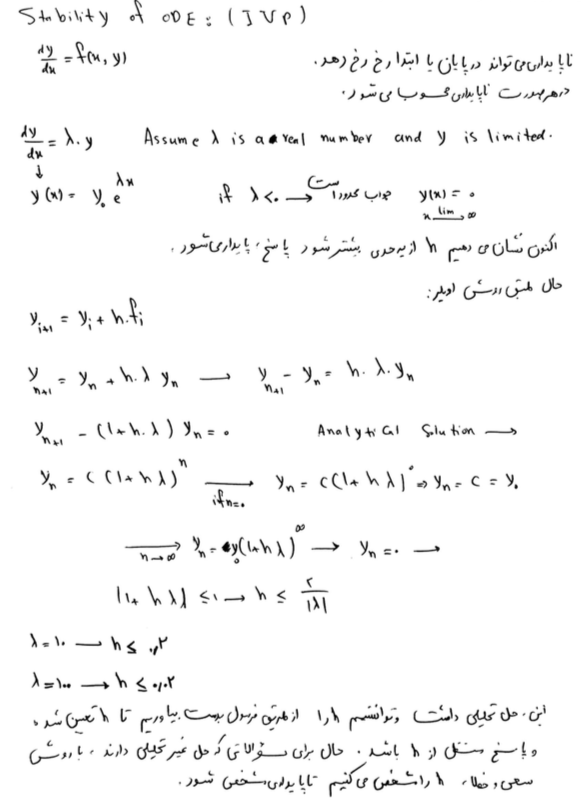 Stability of ODE: (IVP)
dy/dx = f(x, y) ناپایداری می‌تواند در پایان یا ابتدا رخ دهد.
در هر صورت ناپایداری محسوب می‌شود.
dy/dx = λ.y Assume λ is a real number and y is limited.
↓
y(x) = y₀ e^{λx} if λ<۰ → جواب محدود است y(x) = ۰
lim x→∞
اکنون نشان می دهیم h از یه حدی بیشتر شود پاسخ، پایدار می‌شود.
حال طبق روش اویلر:
y_{i+1} = y_i + h.f_i
y_{n+1} = y_n + h.λ y_n → y_{n+1} - y_n = h.λ.y_n
y_{n+1} - (1+h.λ) y_n = ۰ Analytical Solution →
y_n = c(1+hλ)^n → if n=۰ y_n = c(1+hλ)^۰ ⇒ y_n = c = y₀
→ n→∞ y_n = y₀(1+hλ)^∞ → y_n = ۰ →
|1+hλ| ≤ ۱ → h ≤ ۲/|λ|
λ = ۱۰ → h ≤ ۰٫۲
λ = ۱۰۰ → h ≤ ۰٫۰۲
این، حل تحلیلی داشت و توانستیم h را از طریق فرمول بدست بیاوریم تا h تعیین شد و
و پاسخ مستقل از h باشد. حال برای سؤالاتی که حل غیر تحلیلی دارند، با روش
سعی و خطا، h را مشخص می‌کنیم تا پایداری مشخص شود.